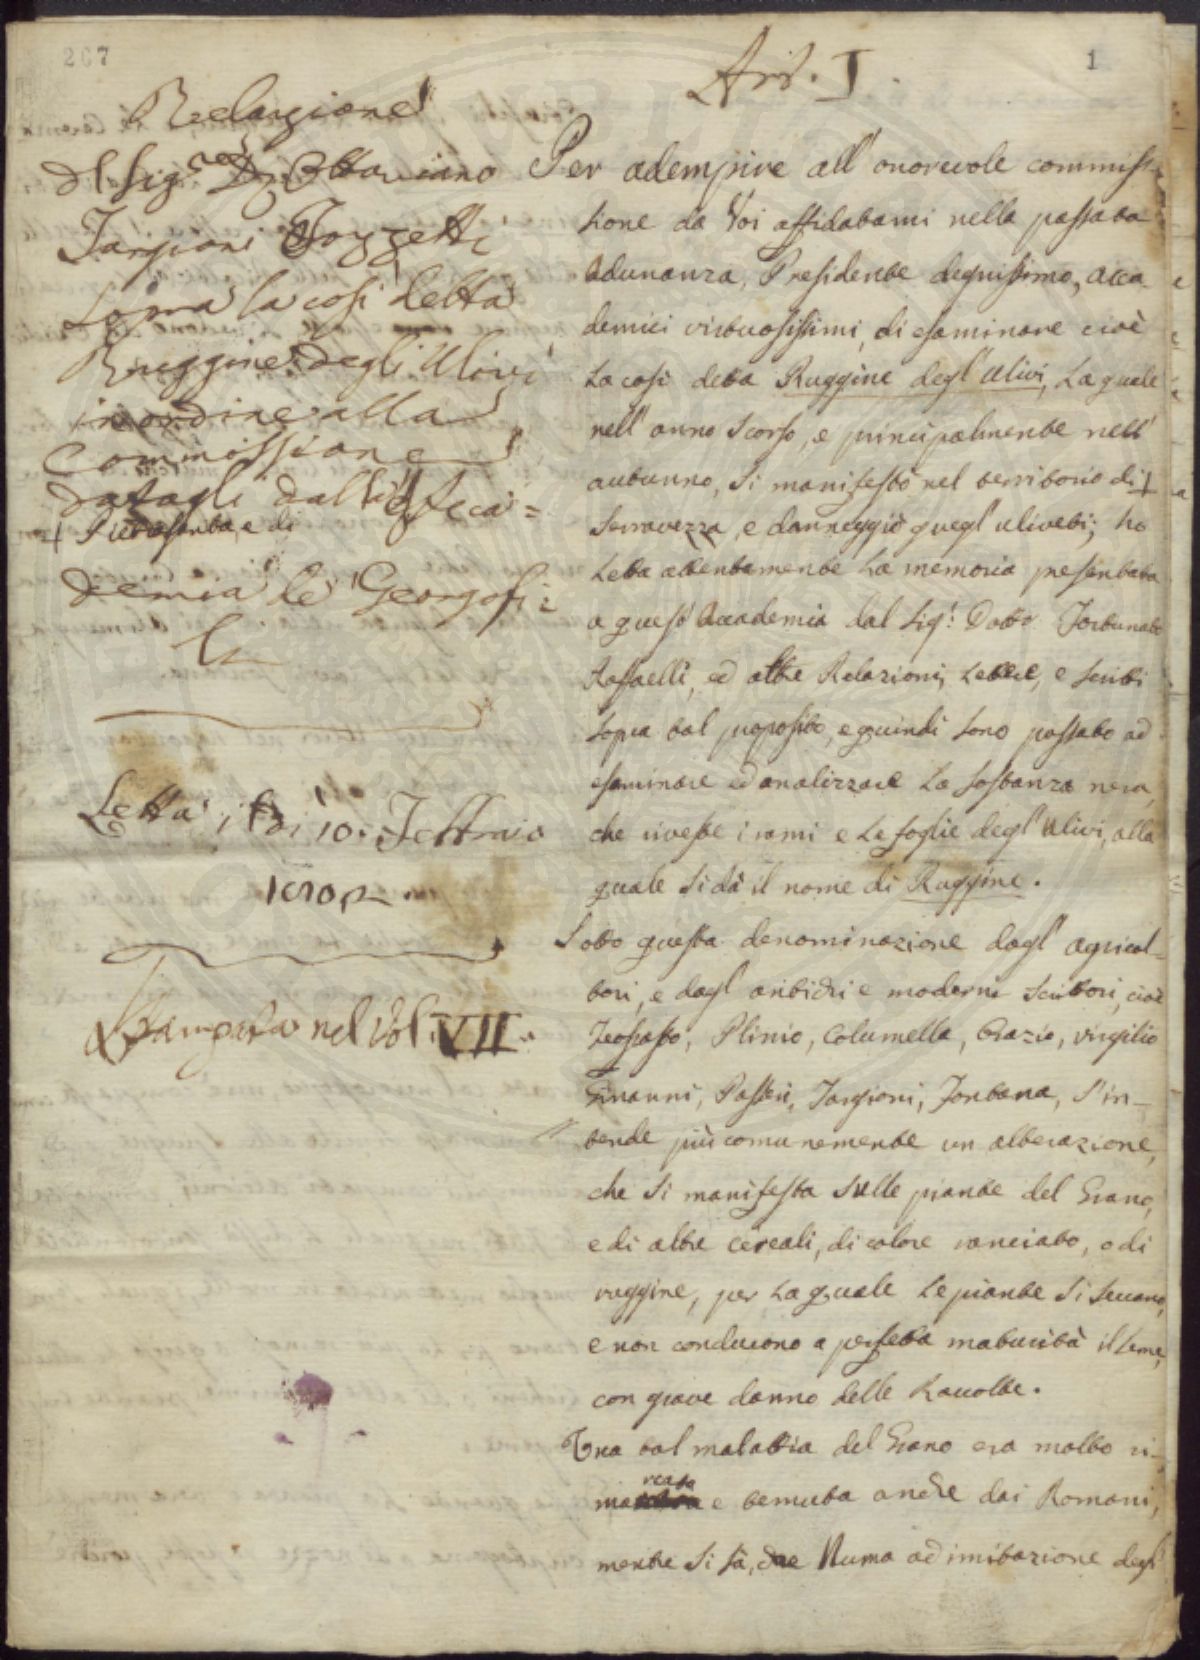 267
1
Art. I.
Relazione
del Sig.re D. Ottaviano
Targioni Tozzetti
sopra la così detta
Ruggine degli Ulivi
in ordine alla
Commissione
datagli dall'Acca=
+ Pietrasanta, e di
demia de' Georgofi=
li
Letta il dì 10. Febbraio
Stampata nel Vol. VII.
Per adempire all'onorevole commis-
sione da Voi affidatami nella passata
Adunanza, Presidente degnissimo, Acca
demici virtuosissimi, di esaminare cioè
la così detta Ruggine degl'Ulivi, la quale
nell'anno scorso, e principalmente nell'
autunno, si manifestò nel territorio di +
Serravezza, e danneggiò quegl'uliveti; ho
letta attentamente la memoria presentata
a questa Accademia dal Sig.r Dott.r Fortunato
Raffaelli, ed altre Relazioni, Lettere, e scritti
sopra tal proposito, e quindi sono passato ad
esaminare ed analizzare la sostanza nera,
che riveste i rami e le foglie degl'Ulivi, alla
quale si dà il nome di Ruggine.
Sotto questa denominazione dagl'agricol=
tori, e dagl'antichi e moderni scrittori, cioè
Teofrasto, Plinio, Columella, Orazio, Virgilio
Ginanni, Passeri, Targioni, Fontana, s'in-
tende più comunemente un alterazione,
che si manifesta sulle piante del Grano,
e di altre cereali, di colore ranciato, o di
ruggine, per la quale le piante si seccano,
e non conducono a perfetta maturità il seme,
con grave danno delle Raccolte.
Una tal malattia del Grano era molto ri-
marcata e temuta anche dai Romani,
mentre si sà, che Numa ad imitazione degl'